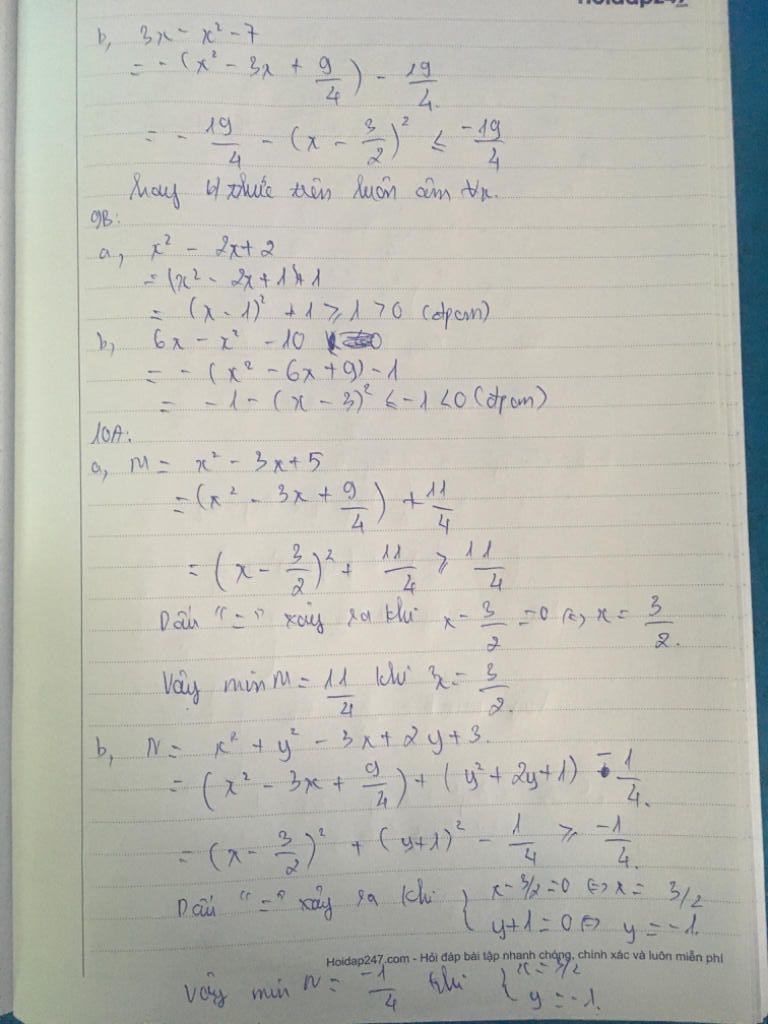 Hoidap247
b, 3x - x² - 7
= - (x² - 3x + 9/4) - 19/4.
= - 19/4 - (x - 3/2)² ≤ -19/4
hay bt thức trên luôn âm ∀x.
9B:
a, x² - 2x + 2
= (x² - 2x + 1) + 1
= (x - 1)² + 1 ≥ 1 > 0 (đpcm)
b, 6x - x² - 10
= - (x² - 6x + 9) - 1
= - 1 - (x - 3)² ≤ -1 < 0 (đpcm)
10A:
a, M = x² - 3x + 5
= (x² - 3x + 9/4) + 11/4
= (x - 3/2)² + 11/4 ≥ 11/4
Dấu "=" xảy ra khi x - 3/2 = 0 ⇔ x = 3/2.
Vậy min M = 11/4 khi x = 3/2.
b, N = x² + y² - 3x + 2y + 3.
= (x² - 3x + 9/4) + (y² + 2y + 1) - 1/4.
= (x - 3/2)² + (y + 1)² - 1/4 ≥ -1/4.
Dấu "=" xảy ra khi { x - 3/2 = 0 ⇔ x = 3/2
y + 1 = 0 ⇔ y = -1.
Hoidap247.com - Hỏi đáp bài tập nhanh chóng, chính xác và luôn miễn phí
Vậy min N = -1/4 khi { x = 3/2
y = -1.